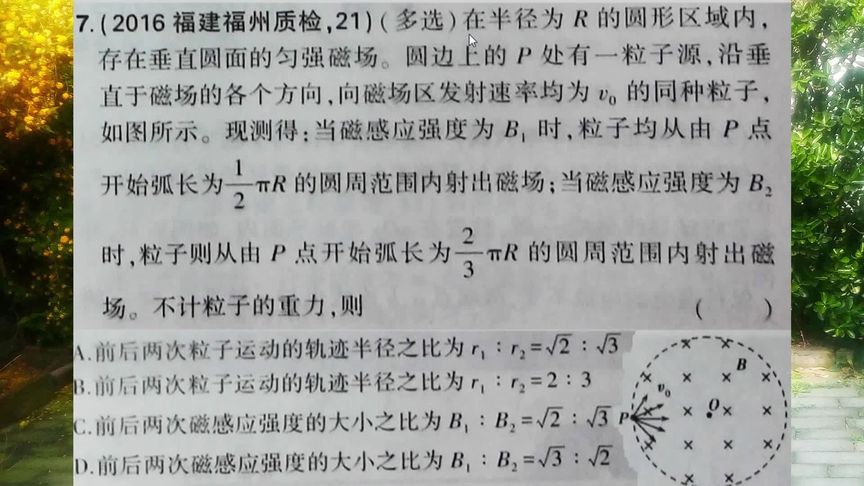 7.(2016 福建福州质检,21)(多选)在半径为 R 的圆形区域内,
存在垂直圆面的匀强磁场。圆边上的 P 处有一粒子源,沿垂
直于磁场的各个方向,向磁场区发射速率均为 v₀ 的同种粒子,
如图所示。现测得:当磁感应强度为 B₁ 时,粒子均从由 P 点
开始弧长为 1/2 πR 的圆周范围内射出磁场;当磁感应强度为 B₂
时,粒子则从由 P 点开始弧长为 2/3 πR 的圆周范围内射出磁
场。不计粒子的重力,则 ( )
A.前后两次粒子运动的轨迹半径之比为 r₁∶r₂=√2∶√3
B.前后两次粒子运动的轨迹半径之比为 r₁∶r₂=2∶3
C.前后两次磁感应强度的大小之比为 B₁∶B₂=√2∶√3
D.前后两次磁感应强度的大小之比为 B₁∶B₂=√3∶√2
B
v₀
P
O